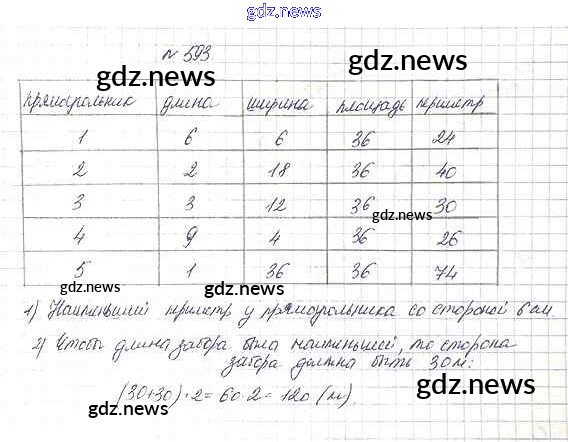 gdz.news
№ 593.
gdz.news
gdz.news
прямоугольник длина ширина площадь периметр
1 6 6 36 24
2 2 18 36 40
3 3 12 36 30
gdz.news
4 9 4 36 26
5 1 36 36 74
gdz.news
gdz.news
1) Наименьший периметр у прямоугольника со стороной 6 см.
2) Чтобы длина забора была наименьшей, то сторона
забора должна быть 30 м:
(30+30)·2=60·2=120 (м).
gdz.news
gdz.news
gdz.news